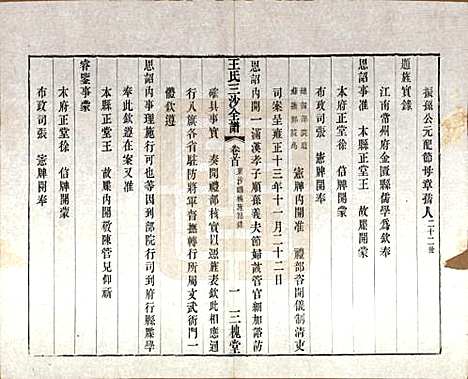 振孫公元配節母章孺人二十二世
題旌實錄
江南常州府金匱縣儒學爲欽奉
恩詔事准　本縣正堂王　故牒開蒙
本府正堂徐　信牌開蒙
布政司張　憲牌開奉
憲牌內開准　禮部咨開儀制清吏
司案呈雍正十三年十一月二十二日
恩詔內開一滿漢孝子順孫義夫節婦該管官細加諮訪
王氏三沙全譜　卷首　一　三槐堂
確實具　奏開禮部核實以憑旌表欽此相應通
行八旗各省駐防將軍督撫轉行所屬文武衙門一
體欽遵
恩詔內事理施行可也到部院行司到府行縣牒學
奉此欽遵在案又准
本縣正堂王　故牒內開敬陳管見仰祈
睿鑒事蒙
本府正堂徐　信牌開蒙
布政司張　憲牌開奉